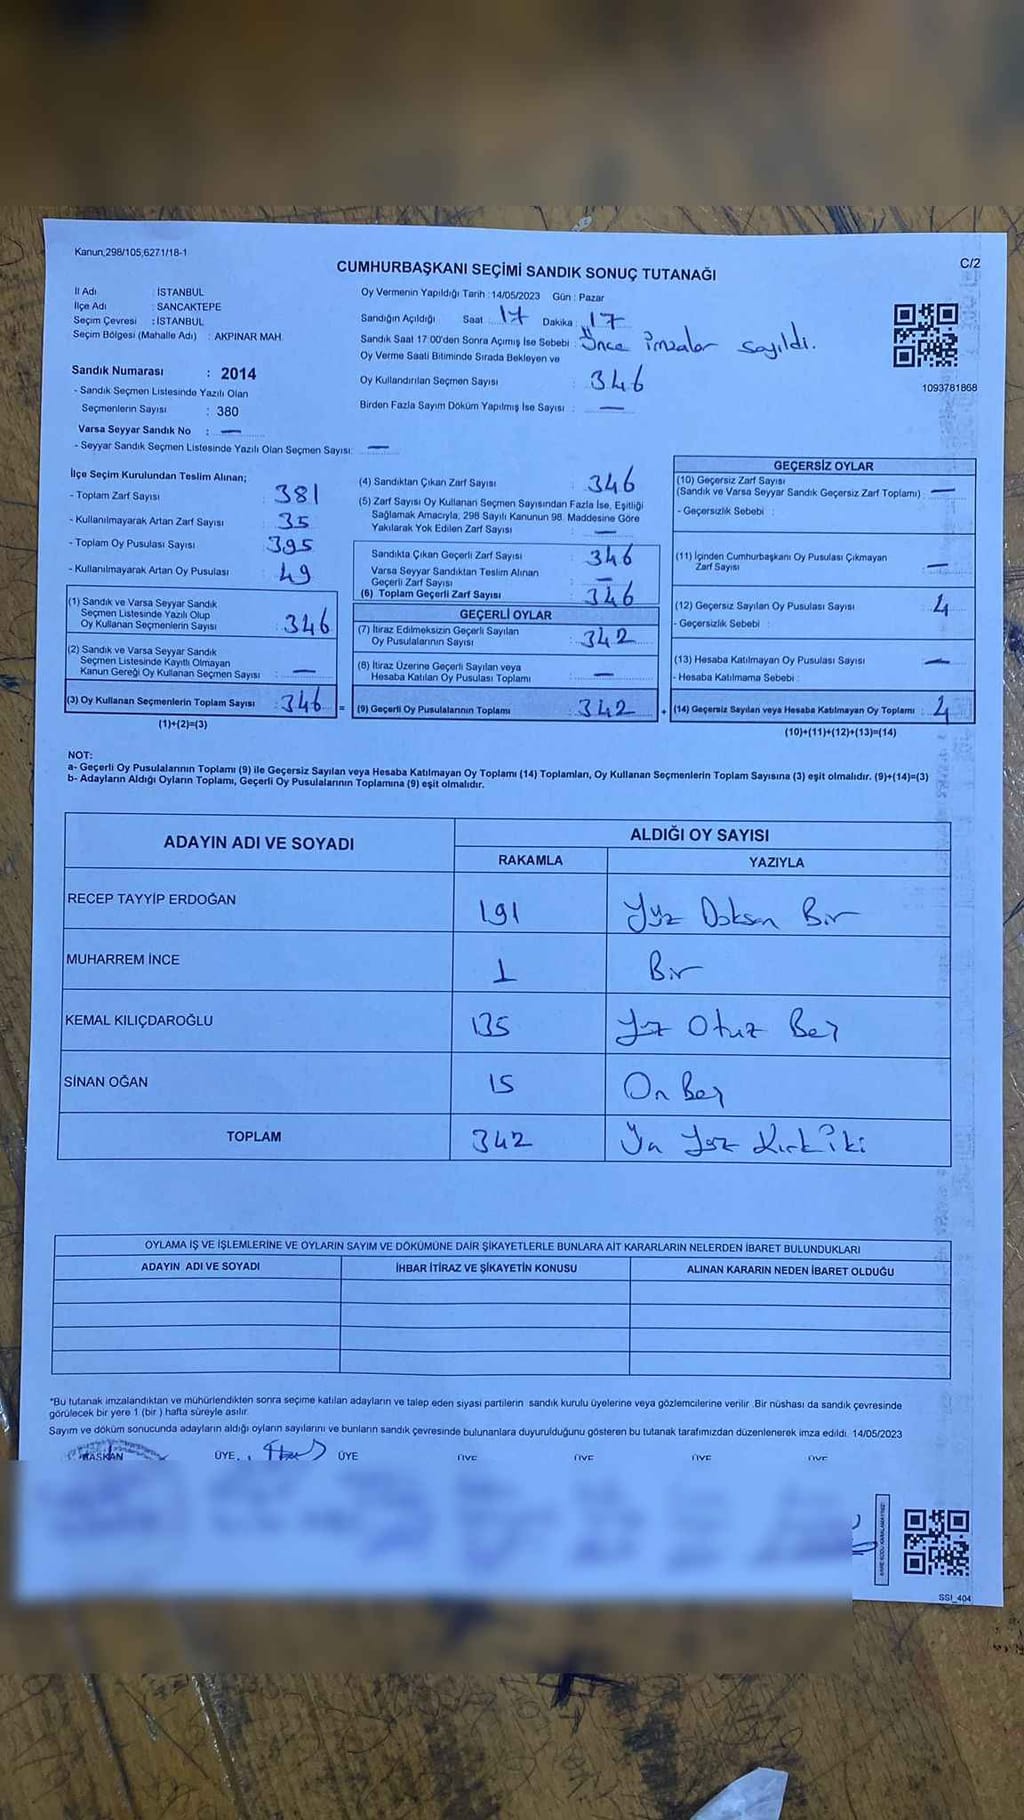 Kanun,298/105,6271/18-1
C/2
CUMHURBAŞKANI SEÇİMİ SANDIK SONUÇ TUTANAĞI
İl Adı : İSTANBUL
İlçe Adı : SANCAKTEPE
Seçim Çevresi : İSTANBUL
Seçim Bölgesi (Mahalle Adı) : AKPINAR MAH.
Sandık Numarası : 2014
- Sandık Seçmen Listesinde Yazılı Olan
Seçmenlerin Sayısı : 380
Varsa Seyyar Sandık No : —
- Seyyar Sandık Seçmen Listesinde Yazılı Olan Seçmen Sayısı: —
Oy Vermenin Yapıldığı Tarih : 14/05/2023 Gün : Pazar
Sandığın Açıldığı Saat 17 Dakika : 17
Sandık Saat 17:00'den Sonra Açımış İse Sebebi : Önce imzalar sayıldı.
Oy Verme Saati Bitiminde Sırada Bekleyen ve
Oy Kullandırılan Seçmen Sayısı : 346
Birden Fazla Sayım Döküm Yapılmış İse Sayısı : —
1093781868
İlçe Seçim Kurulundan Teslim Alınan;
- Toplam Zarf Sayısı : 381
- Kullanılmayarak Artan Zarf Sayısı : 35
- Toplam Oy Pusulası Sayısı : 395
- Kullanılmayarak Artan Oy Pusulası : 49
(1) Sandık ve Varsa Seyyar Sandık
Seçmen Listesinde Yazılı Olup
Oy Kullanan Seçmenlerin Sayısı : 346
(2) Sandık ve Varsa Seyyar Sandık
Seçmen Listesinde Kayıtlı Olmayan
Kanun Gereği Oy Kullanan Seçmen Sayısı : —
(3) Oy Kullanan Seçmenlerin Toplam Sayısı : 346
(1)+(2)=(3)
(4) Sandıktan Çıkan Zarf Sayısı : 346
(5) Zarf Sayısı Oy Kullanan Seçmen Sayısından Fazla İse, Eşitliği
Sağlamak Amacıyla, 298 Sayılı Kanunun 98. Maddesine Göre
Yakılarak Yok Edilen Zarf Sayısı : —
Sandıkta Çıkan Geçerli Zarf Sayısı : 346
Varsa Seyyar Sandıktan Teslim Alınan
Geçerli Zarf Sayısı : —
(6) Toplam Geçerli Zarf Sayısı : 346
GEÇERLİ OYLAR
(7) İtiraz Edilmeksizin Geçerli Sayılan
Oy Pusulalarının Sayısı : 342
(8) İtiraz Üzerine Geçerli Sayılan veya
Hesaba Katılan Oy Pusulası Toplamı : —
= (9) Geçerli Oy Pusulalarının Toplamı : 342
GEÇERSİZ OYLAR
(10) Geçersiz Zarf Sayısı :
(Sandık ve Varsa Seyyar Sandık Geçersiz Zarf Toplamı) —
- Geçersizlik Sebebi :
(11) İçinden Cumhurbaşkanı Oy Pusulası Çıkmayan
Zarf Sayısı : —
(12) Geçersiz Sayılan Oy Pusulası Sayısı : 4
- Geçersizlik Sebebi :
(13) Hesaba Katılmayan Oy Pusulası Sayısı : —
- Hesaba Katılmama Sebebi :
+ (14) Geçersiz Sayılan veya Hesaba Katılmayan Oy Toplamı : 4
(10)+(11)+(12)+(13)=(14)
NOT:
a- Geçerli Oy Pusulalarının Toplamı (9) ile Geçersiz Sayılan veya Hesaba Katılmayan Oy Toplamı (14) Toplamları, Oy Kullanan Seçmenlerin Toplam Sayısına (3) eşit olmalıdır. (9)+(14)=(3)
b- Adayların Aldığı Oyların Toplamı, Geçerli Oy Pusulalarının Toplamına (9) eşit olmalıdır.
ADAYIN ADI VE SOYADI
ALDIĞI OY SAYISI
RAKAMLA YAZIYLA
RECEP TAYYİP ERDOĞAN 191 Yüz Doksan Bir
MUHARREM İNCE 1 Bir
KEMAL KILIÇDAROĞLU 135 Yüz Otuz Beş
SİNAN OĞAN 15 On Beş
TOPLAM 342 Üç Yüz Kırk iki
OYLAMA İŞ VE İŞLEMLERİNE VE OYLARIN SAYIM VE DÖKÜMÜNE DAİR ŞİKAYETLERLE BUNLARA AİT KARARLARIN NELERDEN İBARET BULUNDUKLARI
ADAYIN ADI VE SOYADI İHBAR İTİRAZ VE ŞİKAYETİN KONUSU ALINAN KARARIN NEDEN İBARET OLDUĞU
*Bu tutanak imzalandıktan ve mühürlendikten sonra seçime katılan adayların ve talep eden siyasi partilerin sandık kurulu üyelerine veya gözlemcilerine verilir. Bir nüshası da sandık çevresinde
görülecek bir yere 1 (bir) hafta süreyle asılır.
Sayım ve döküm sonucunda adayların aldığı oyların sayılarını ve bunların sandık çevresinde bulunanlara duyurulduğunu gösteren bu tutanak tarafımızdan düzenlenerek imza edildi. 14/05/2023
BAŞKAN ÜYE ÜYE ÜYE ÜYE ÜYE ÜYE
SSI_404